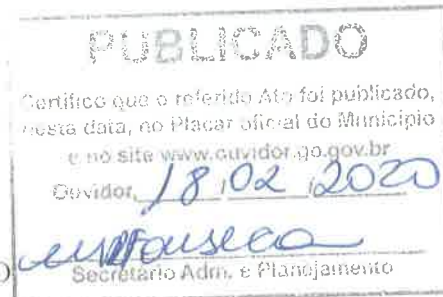 PUBLICADO
Certifico que o referido Ato foi publicado,
nesta data, no Placar oficial do Município
e no site www.ouvidor.go.gov.br
Ouvidor, 18, 02, 2020
Secretário Adm. e Planejamento